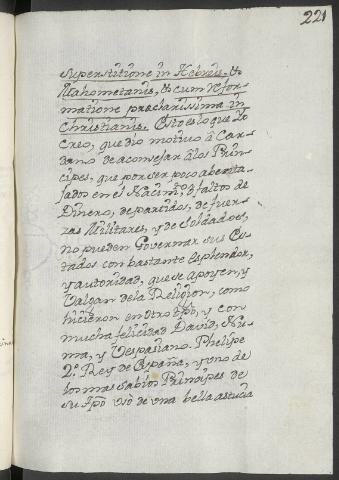 221
superstitione in Hebreis, &
Mahometanis, & cum refor-
matione praeclarissima in
Christianis. Esto es lo que yo
creo, que dio motivo à Car-
dano de aconsejar à los Prin-
cipes, que por ser poco abenta-
jados en el Nacimto, ò faltos de
Dinero, de partidos, de fuer-
zas Militares, y de Soldados,
no pueden Governar sus Es-
tados con bastante esplendor,
y autoridad, que se apoyen, y
Valgan de la Religion, como
hicieron en otro tpõ, y con
mucha felicidad David, Nu-
ma, y Vespasiano. Phelipe
2º. Rey de España, y uno de
los mas sabios Principes de
su tpõ usò de una bella astucia